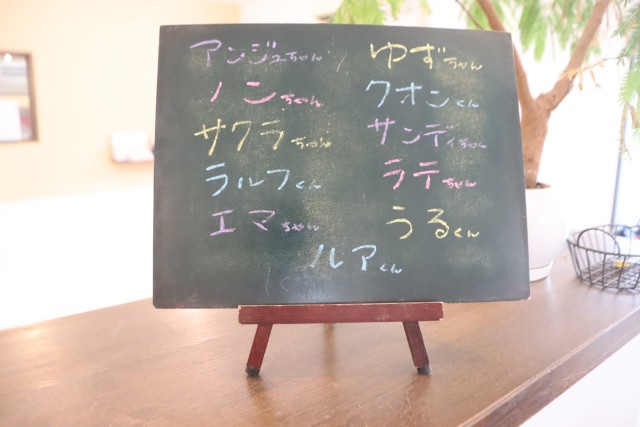 アンジュちゃん ゆずちゃん
ノンちゃん クオンくん
サクラちゃん サンディちゃん
ラルフくん ラテちゃん
エマちゃん うるくん
ルアくん